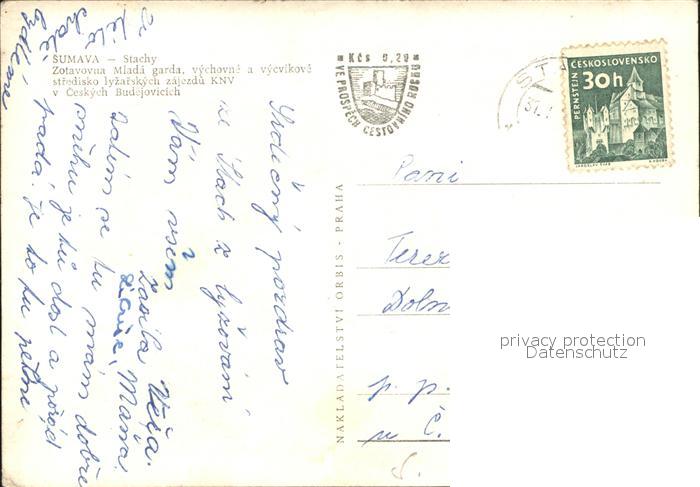 ŠUMAVA — Stachy
Zotavovna Mladá garda, výchovné a výcvikové
středisko lyžařských zájezdů KNV
v Českých Budějovicích
Kčs 0,20
VE PROSPĚCH CESTOVNÍHO RUCHU
STA
31.
ČESKOSLOVENSKO
30h
PERNŠTEJN
NAKLADATELSTVÍ ORBIS - PRAHA
Paní
Terez
Doln
p. p.
u Č.
Srdečný pozdrav
ze Stach z lyžování
Vám všem
zasílá Věra.
Máňa
zatím se tu mám dobře
sněhu je tu dost a pořád
padá. Je to tu pěkné
privacy protection
Datenschutz